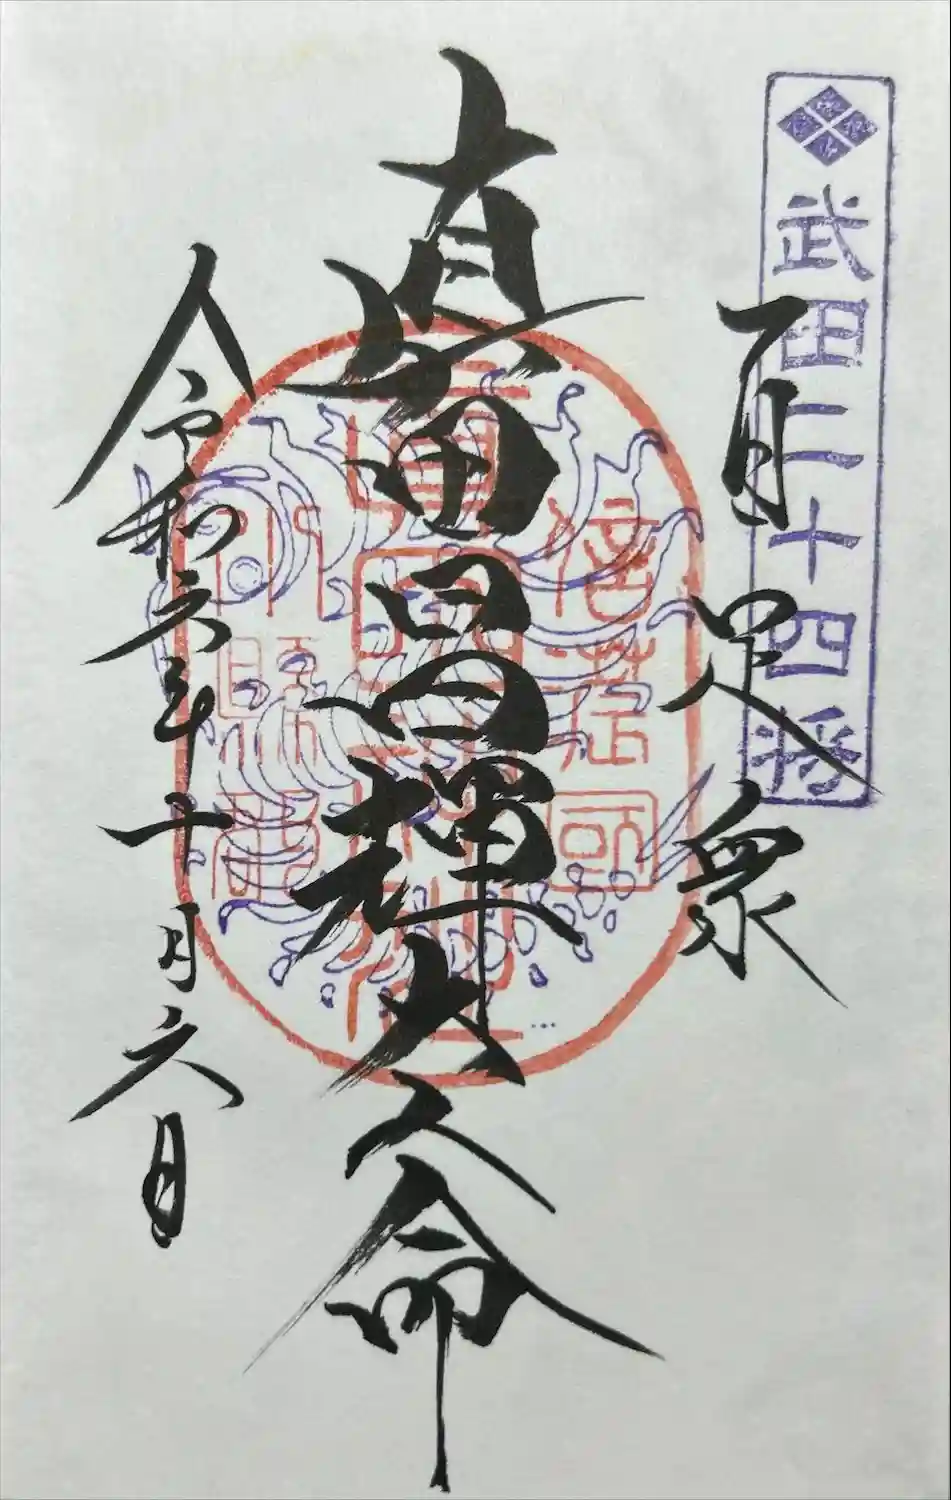 武田二十四将
百足衆
真田昌輝大人命
令和六年十月六日